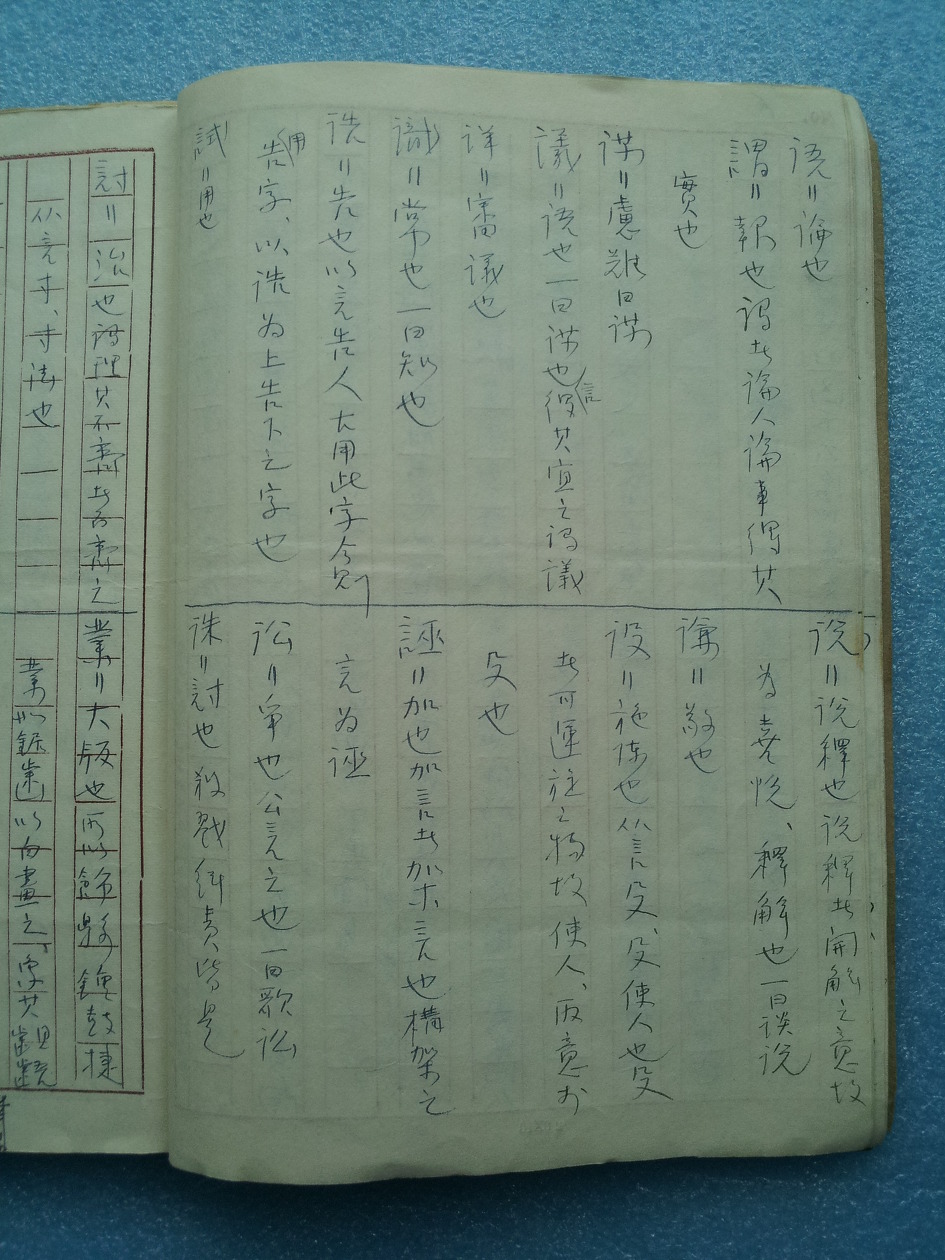 语=論也
謂=報也谓者論人論事得其
實也
谋=慮難曰谋
議=语也一曰谋也得其宜之谓議
言
详=審議也
識=常也一曰知也
诰=告也以言告人古用此字今则
用
告字、以诰为上告下之字也
試=用也
说=说釋也说釋者開解之意故
为喜悦、釋解也一曰谈说
謙=敬也
设=施陈也从言殳、殳使人也殳
者可運旋之物故使人、取意於
殳也
誣=加也加言者加架言也構架之
言为誣
讼=争也公言之也一曰歌讼
诛=討也殺戮糾责皆是
討=治也谓理其不齊者而齊之
从言寸、寸法也
業=大版也所以飾縣鐘鼓捷
業如鋸齒以白畫之、象其鉏鋙